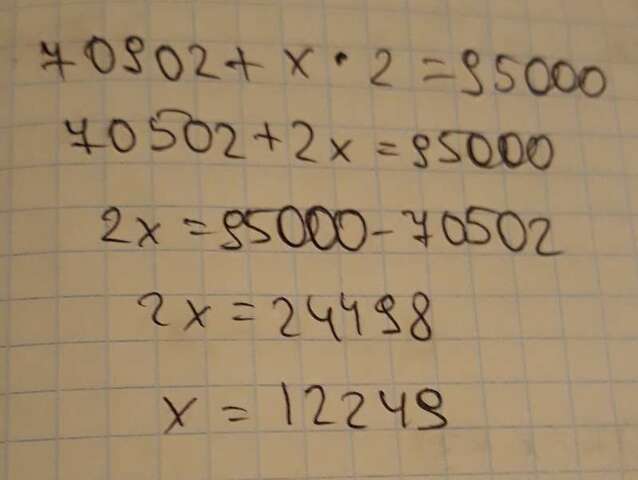 70902+x·2=95000
70502+2x=95000
2x=95000-70502
2x=24498
x=12249